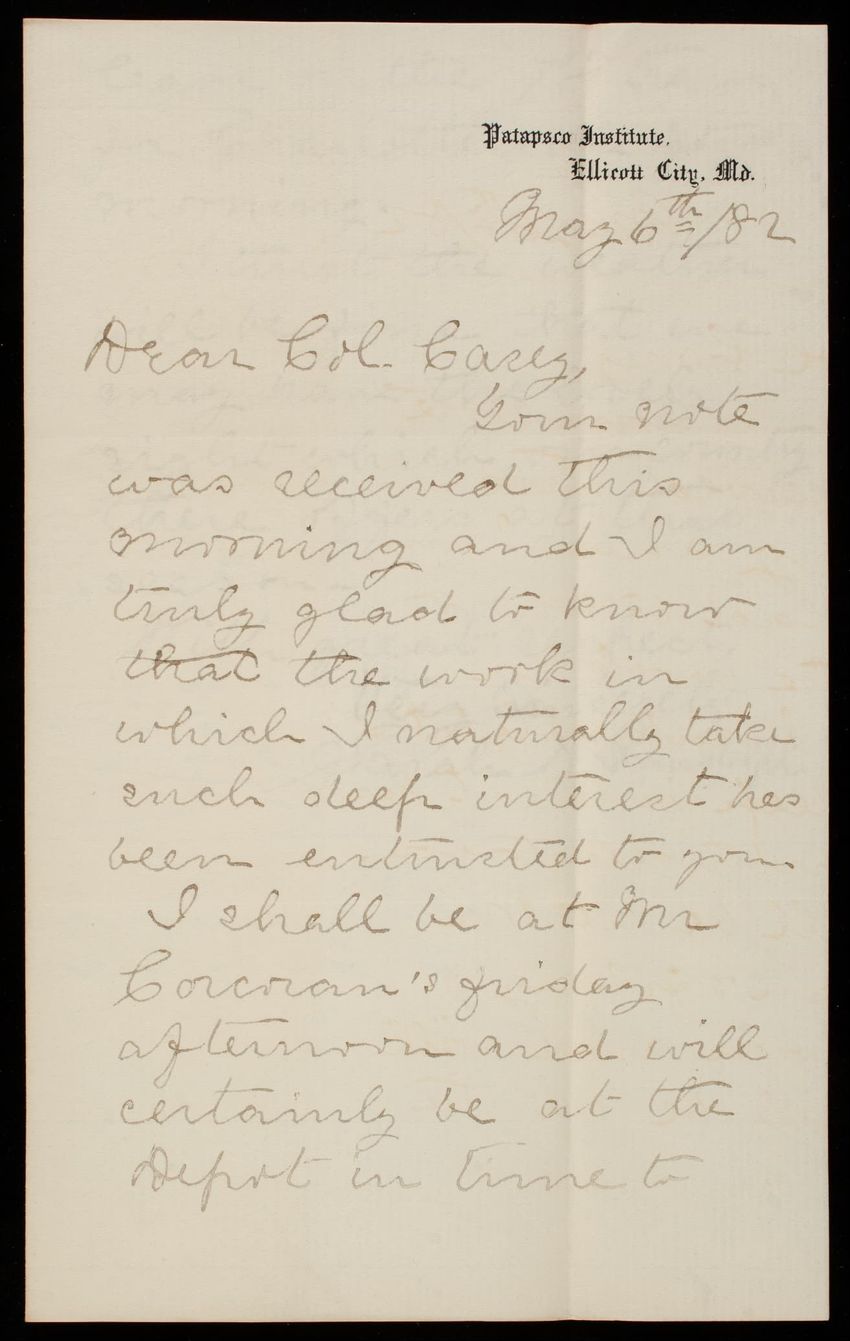 Patapsco Institute.
Ellicott City, Md.
May 6th/82
Dear Col. Casey,
Your note
was received this
morning and I am
truly glad to know
that the work in
which I naturally take
such deep interest has
been entrusted to you.
I shall be at Mr
Corcoran's friday
afternoon and will
certainly be at the
Depot in time to